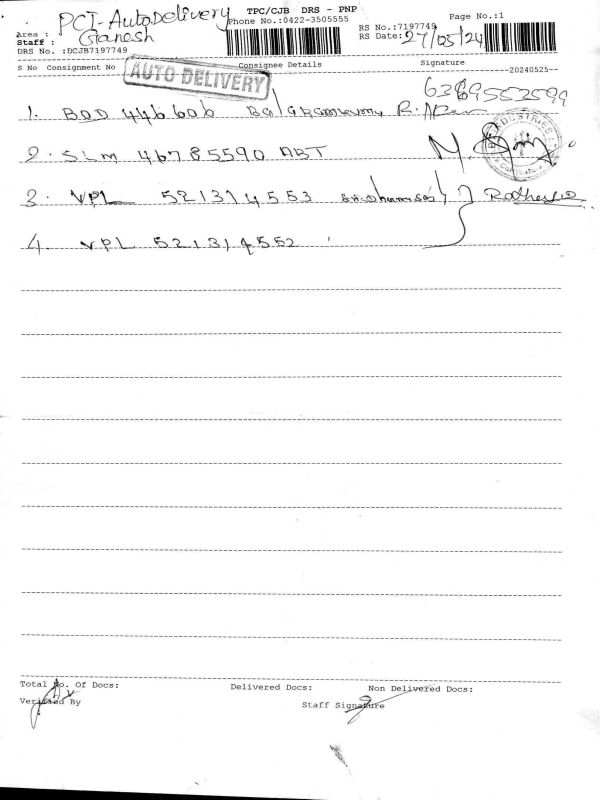 TPC/CJB DRS - PNP
Page No.:1
PCI-AutoDelivery
Phone No.:0422-3505555
Area :
RS No.:7197749
Staff : Ganesh
RS Date: 27/05/24
DRS No. :DCJB7197749
AUTO DELIVERY
S No Consignment No Consignee Details Signature --20240525--
6369553599
1. BOD 446606
2. SLM 46785590 ABT
3. VPL 521314553
4. VPL 521314552
Total No. Of Docs: Delivered Docs: Non Delivered Docs:
Verified By Staff Signature